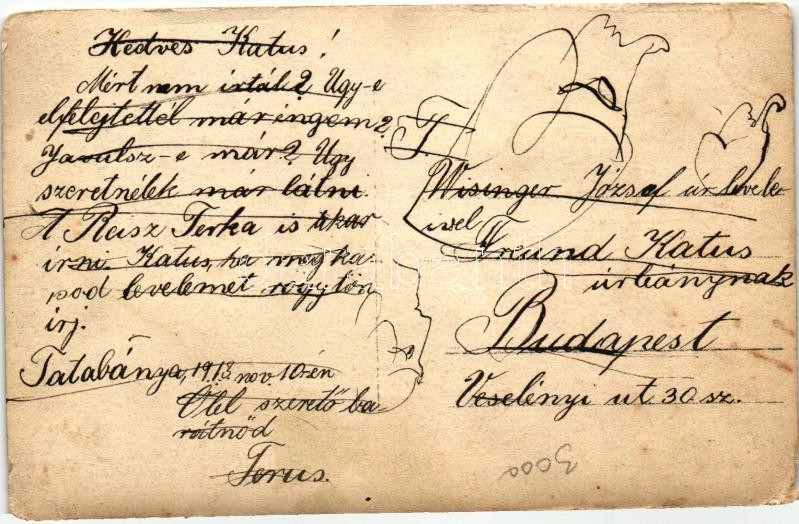 Kedves Katus!
Mért nem irtál? Ugy-e
elfelejtettél már engem?
Javulsz-e már? Ugy
szeretnélek már látni.
A Reisz Terka is akar
irni. Katus, ha megka-
pod levelemet rögytön
irj.
Tatabánya, 1918 nov. 10-én
Ölel szerető ba-
rátnőd
Terus.
T.
Wisinger József úr levele-
ivel
Freund Katus
úrleánynak
Budapest
Veselényi ut. 30 sz.
3000